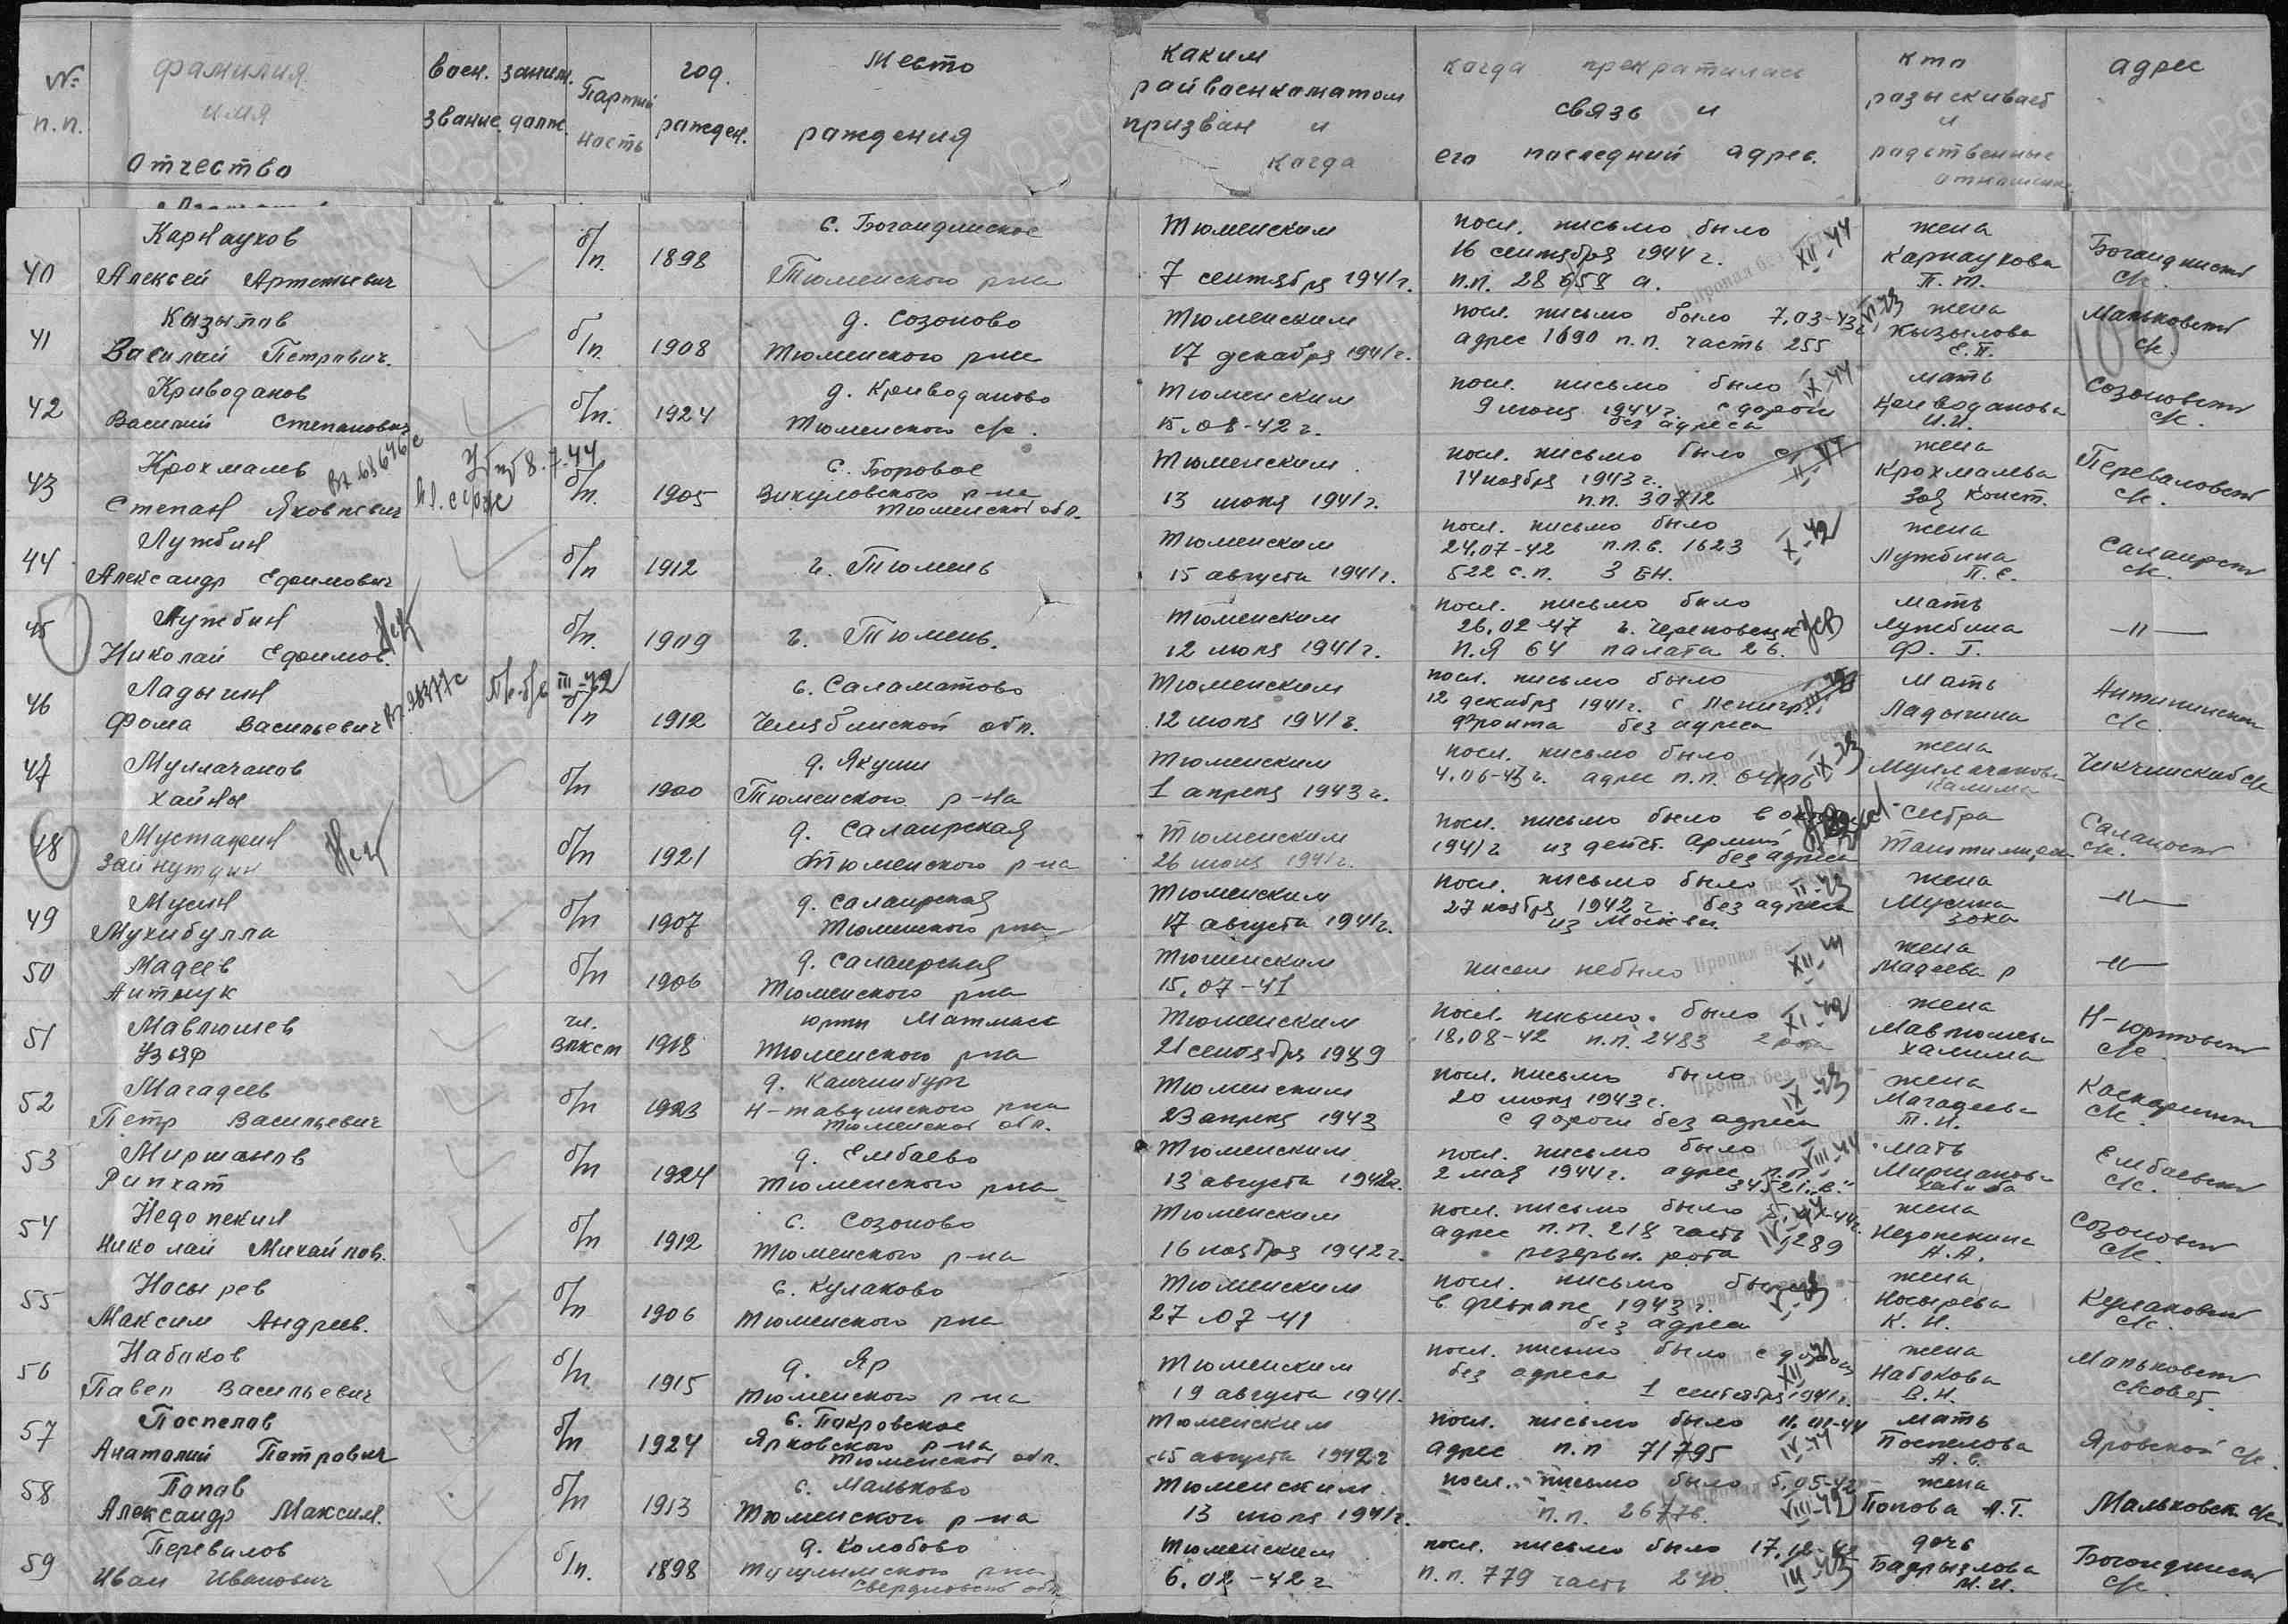 № п.п.
фамилия имя Отчество
воен. звание
заним. долж.
Партий ность
год. рожден.
Место рождения
каким райвоенкоматом призван и когда
когда прекратилась связь и его последний адрес.
кто разыскивает и родственные отношения
адрес
40 Карнаухов Алексей Артемьевич б/п. 1898 с. Богандинское Тюменского р-на Тюменским 7 сентября 1941г. посл. письмо было 16 сентября 1944 г. п.п. 28658 а. XII-44 жена Карнаухова П. Т. Богандинск с/с.
41 Кызылов Василий Петрович. б/п. 1908 д. Созоново Тюменского р-на Тюменским 17 декабря 1941г. посл. письмо было 7.03-43г. адрес 1690 п.п. часть 255 жена Кызылова Е.П. Мальковск с/с.
42 Криводанов Василий Степанович б/п. 1924 д. Криводаново Тюменского с/с. Тюменским 15.08-42 г. посл. письмо было 9 июня 1944г. с дороги без адреса IX-44 мать Криводанова И.И. Созоновск с/с.
43 Крохмалев Степан Яковлевич Вх 63646с мл. серж Убит 8.7.44 б/п. 1905 с. Боровое Викуловского р-на Тюменской обл. Тюменским 13 июня 1941г. посл. письмо было 14 ноября 1943 г. п.п. 30712 жена Крохмалева Зоя Конст. Переваловск с/с.
44 Лужбин Александр Ефимович б/п 1912 г. Тюмень Тюменским 15 августа 1941г. посл. письмо было 24.07-42 п.п.в. 1623 522 с.п. 3 БН. X-42 жена Лужбина П.Е. Салаирск с/с.
45 Лужбин Николай Ефимов. Нет б/п. 1909 г. Тюмень. Тюменским 12 июля 1941г. посл. письмо было 26.02-47 г. Череповецк п.я 64 палата 26. мать Лужбина Ф. Г. —"—
46 Ладыгин Фома Васильевич Вх. 98377с III-42 б/п 1912 с. Саламатово Челябинской обл. Тюменским 12 июля 1941г. посл. письмо было 12 декабря 1941г. с Ленигр. фронта без адреса мать Ладыгина Антипинск с/с.
47 Муллачанов Хайны б/п 1900 д. Якуши Тюменского р-на Тюменским 1 апреля 1943 г. посл. письмо было 4.06-43 г. адрес п.п. IX-43 жена Муллачанова Калима Чикчинский с/с
48 Мустафин Зайнутдин Нет б/п 1921 д. Салаирская Тюменского р-на Тюменским 26 июня 1941г. посл. письмо было в 1941г из дейст. армии без адреса сестра с/с.
49 Мусин Мухибулла б/п 1907 д. Салаирская Тюменского р-на Тюменским 17 августа 1941г. посл. письмо было 27 ноября 1942 г. без адреса из Москвы II-43 жена Мусина Зоха —"—
50 Мадеев Аитмук б/п 1906 д. Салаирская Тюменского р-на Тюменским 15.07-41 писем небыло XII-41 жена Мадеева Р —"—
51 Мавлюшев Узяф чл. ВЛКСМ 1918 юрты Матмасс Тюменского р-на Тюменским 21 сентября 1939 посл. письмо. было 18.08-42 п.п. 2483 2 рота XI-42 жена Мавлюшева Халима Н-юртовск с/с.
52 Магадеев Петр Васильевич б/п 1923 д. Канчинбург Н-тавдинского р-на Тюменской обл. Тюменским 23 апреля 1943 посл. письмо было 20 июля 1943г. с дороги без адреса IX-43 жена Магадеева П.И. Каскаринск с/с.
53 Миршанов Рипхат б/п 1924 д. Ембаево Тюменского р-на Тюменским 13 августа 1942г. посл. письмо было 2 мая 1944 г. адрес п.п. 34521 „В" VIII-44 мать Миршанова Хабиба Ембаевск с/с.
54 Недопекин Николай Михайлов. б/п 1912 с. Созоново Тюменского р-на Тюменским 16 ноября 1942г. посл. письмо было адрес п.п. 218 часть 289 резервн. рота жена Недопекина А.А. Созоновск с/с.
55 Носырев Максим Андреев. б/п 1906 с. Кулаково Тюменского р-на Тюменским 27.07-41 посл. письмо было в феврале 1943 г. без адреса V-43 жена Носырева К. Н. Кулаковск с/с.
56 Набоков Павел Васильевич б/п. 1915 д. Яр Тюменского р-на Тюменским 19 августа 1941. посл. письмо было с дороги без адреса 1 сентября 1941г. XII-41 жена Набокова В.Н. Мальковск с/совет.
57 Поспелов Анатолий Петрович б/п 1924 с. Покровское Ярковского р-на Тюменской обл. Тюменским 15 августа 1942г посл. письмо было 11.01-44 адрес п.п 71795 IV-44 мать Поспелова А.С. Яровской с/с.
58 Попов Александр Максим. б/п 1913 с. Мальково Тюменского р-на Тюменским. 13 июля 1941г. посл. письмо было 5.05-42 п.п. 26776. VIII-42 жена Попова А.Г. Мальковск с/с.
59 Перевалов Иван Иванович б/п. 1898 д. Колобово р-на Свердловской обл. Тюменским 6.02-42 г посл. письмо было 17.12-42 п.п. 779 часть 240. III-43 дочь Бадрызлова М.И. Богандинск с/с.